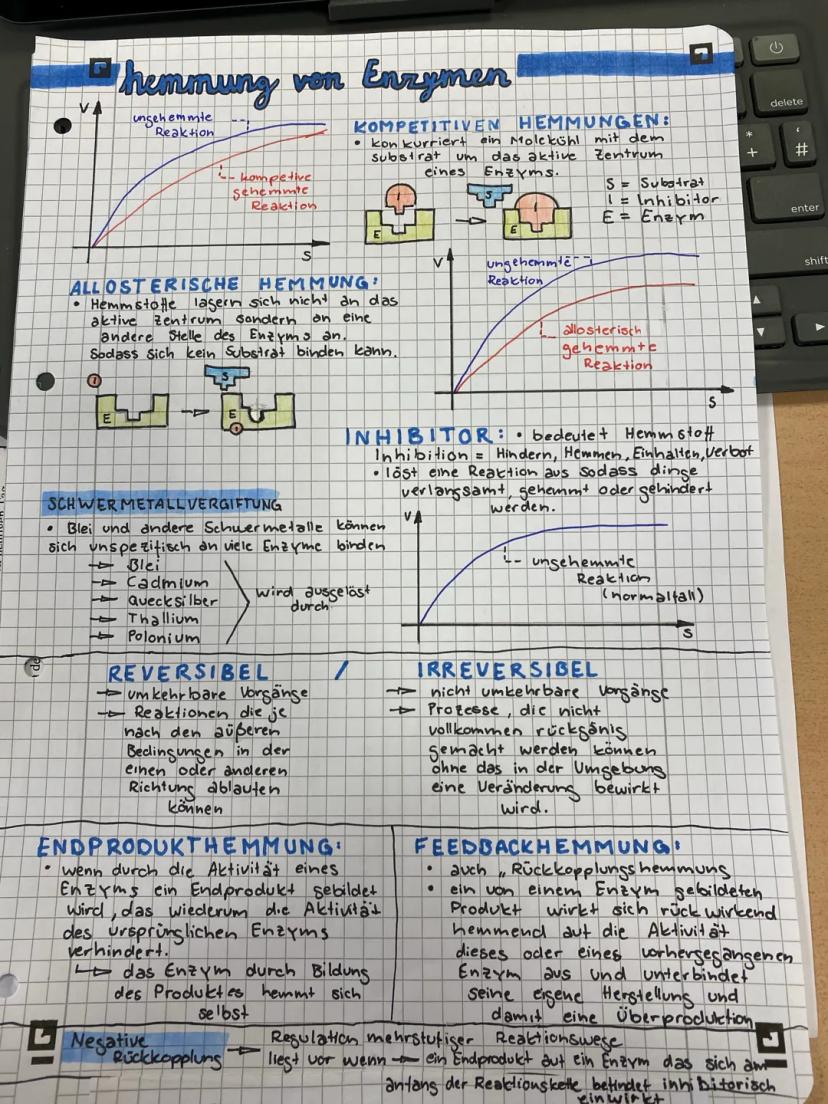 hemmung von Enzymen
V
ungehemmte
Reaktion
kompetive
gehemmte
Reaktion
S
KOMPETITIVEN HEMMUNGEN:
• konkurriert ein Molekühl mit dem
substrat um das aktive Zentrum
eines Enzyms.
I
E
S
I
E
S = Substrat
I = Inhibitor
E = Enzym
ALLOSTERISCHE HEMMUNG:
• Hemmstoffe lagern sich nicht an das
aktive Zentrum sondern an eine
andere Stelle des Enzyms an.
Sodass sich kein Substrat binden kann.
I
E
S
E
I
V
ungehemmte
Reaktion
allosterisch
gehemmte
Reaktion
S
INHIBITOR: • bedeutet Hemmstoff
Inhibition = Hindern, Hemmen, Einhalten, Verbot
• löst eine Reaktion aus sodass dinge
verlangsamt, gehemmt oder gehindert
werden.
SCHWERMETALLVERGIFTUNG
• Blei und andere Schwermetalle können
sich unspezifisch an viele Enzyme binden
Blei
Cadmium
Quecksilber
Thallium
Polonium
wird ausgelöst
durch
V
ungehemmte
Reaktion
(normalfall)
S
REVERSIBEL / IRREVERSIBEL
umkehrbare Vorgänge
Reaktionen die je
nach den äußeren
Bedingungen in der
einen oder anderen
Richtung ablaufen
können
nicht umkehrbare Vorgänge
Prozesse, die nicht
vollkommen rückgänis
gemacht werden können
ohne das in der Umgebung
eine Veränderung bewirkt
wird.
ENDPRODUKTHEMMUNG:
• wenn durch die Aktivität eines
Enzyms ein Endprodukt gebildet
wird, das wiederum die Aktivität
des ursprünglichen Enzyms
verhindert.
das Enzym durch Bildung
des Produktes hemmt sich
selbst
FEEDBACKHEMMUNG:
• auch „Rückkopplungshemmung
• ein von einem Enzym gebildeten
Produkt wirkt sich rückwirkend
hemmend auf die Aktivität
dieses oder eines vorhergegangenen
Enzym aus und unterbindet
seine eigene Herstellung und
damit eine Überproduktion
Negative
Rückkopplung
Regulation mehrstufiger Reaktionswege
liegt vor wenn ein Endprodukt auf ein Enzym das sich am
anfang der Reaktionskette befindet inhibitorisch
einwirkt
delete
*
+
'
#
enter
shift